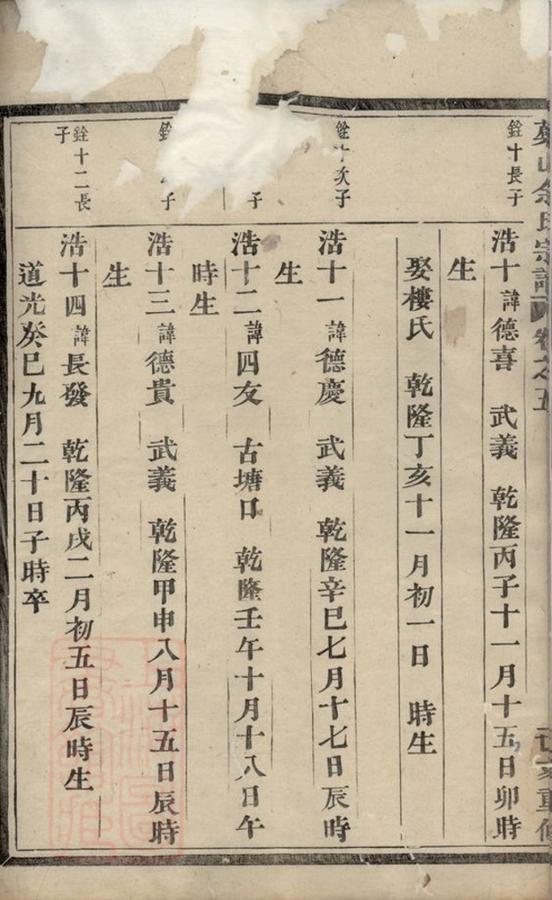 余氏宗譜 卷之五
重修
銓十長子
浩十 諱德喜 武義 乾隆丙子十一月十五日卯時
生
娶樓氏 乾隆丁亥十一月初一日 時生
銓十次子
浩十一 諱德慶 武義 乾隆辛巳七月十七日辰時
生
子
浩十二 諱四友 古塘口 乾隆壬午十月十八日午
時生
銓 子
浩十三 諱德貴 武義 乾隆甲申八月十五日辰時
生
銓十二長
子
浩十四 諱長發 乾隆丙戌二月初五日辰時生
道光癸巳九月二十日子時卒